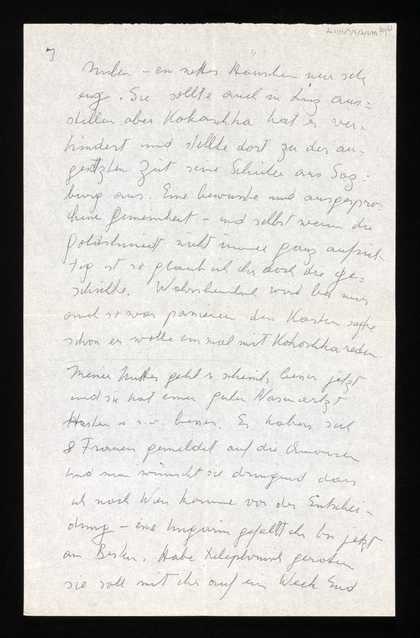 7
finden – ein nettes Häuschen nur sehr
eng. Sie sollte auch in Linz aus=
stellen aber Kokoschka hat es ver-
hindert und stellte dort zu der an-
gesetzten Zeit seine Schüler aus Salz-
burg aus. Eine bewusste und ausgespro
chene Gemeinheit – und selbst wenn die
Goldschmidt nicht immer ganz aufrich
tig ist so glaub ich ihr doch die Ge-
schichte. Wahrscheinlich wird bei mir
auch so was passieren den Kasten sagte
schon er wolle einmal mit Kokoschka reden
Meiner Mutter geht's scheint's besser jetzt
und sie hat einen guten
Husten u.s.w. besser. Es haben sich
8 Frauen gemeldet auf die Annoncen
und man wünscht sie dringend dass
ich nach Wien komme vor der Entschei-
dung – eine Ungarin gefällt ihr bis jetzt
am Besten. Habe telephonisch geraten
sie soll mit ihr auf ein Week End